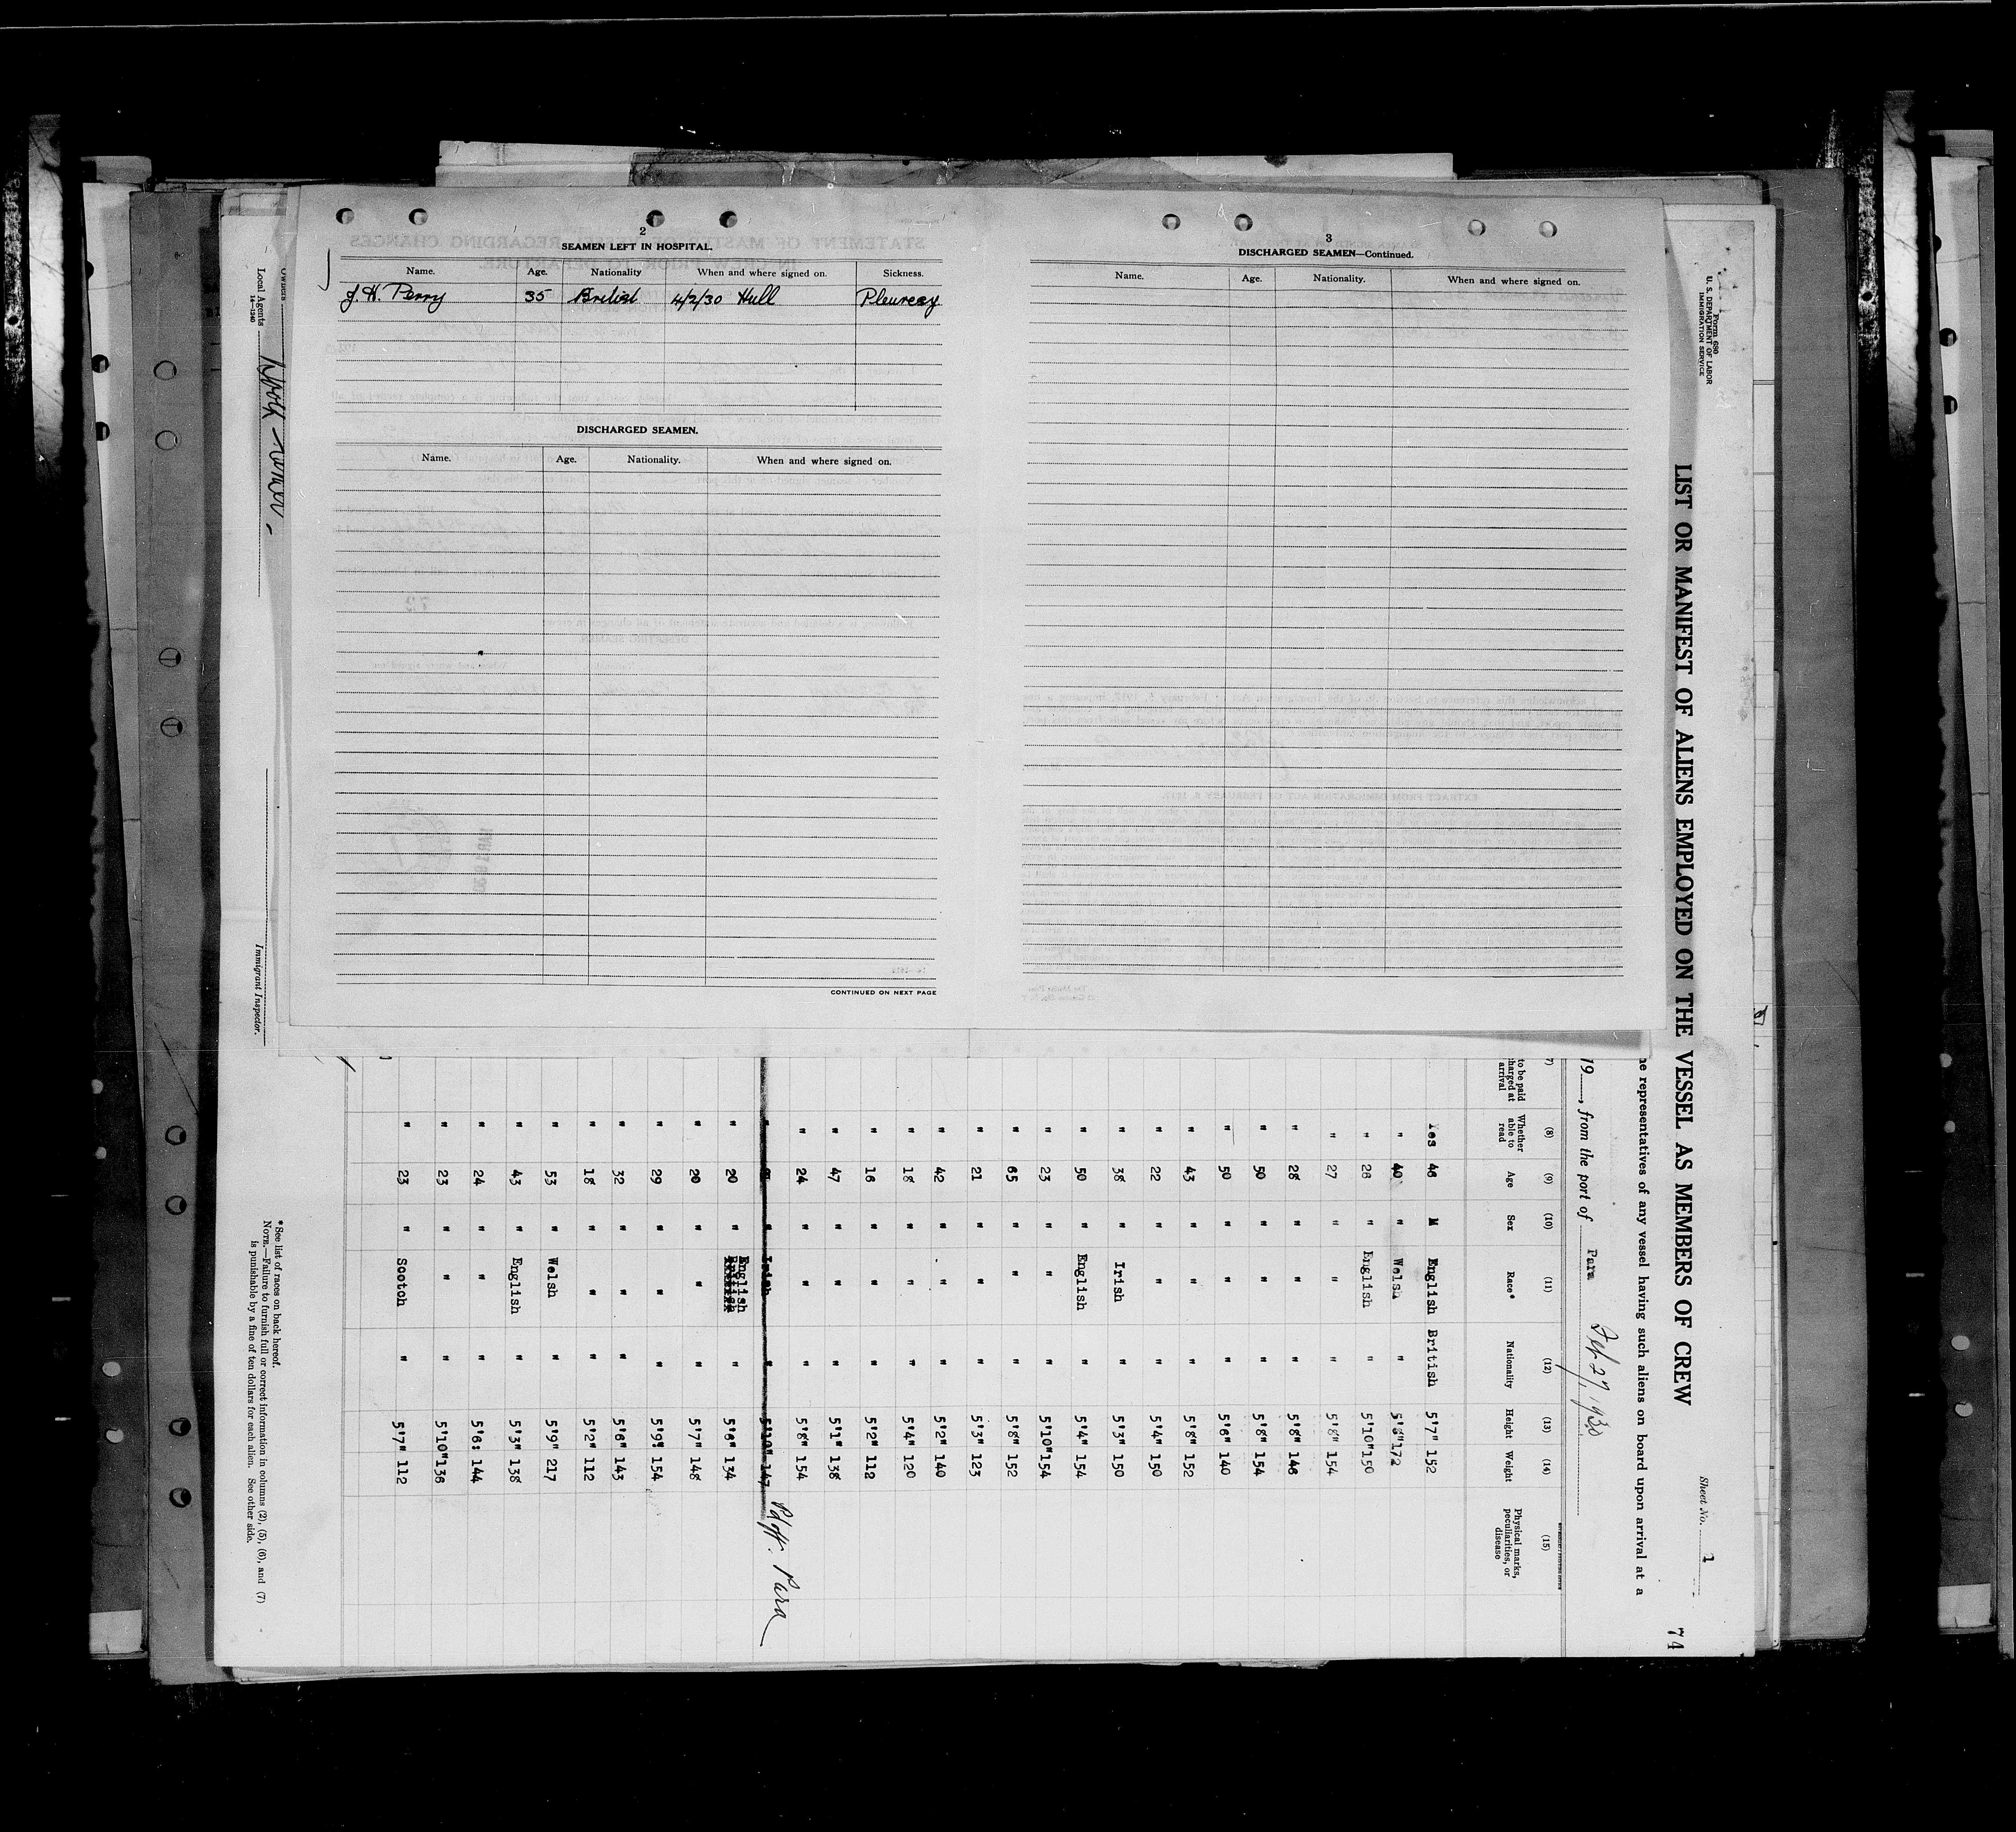 2
SEAMEN LEFT IN HOSPITAL.
Name. Age. Nationality When and where signed on. Sickness.
J. H. Perry 35 British 4/2/30 Hull Pleuresy
DISCHARGED SEAMEN.
Name. Age. Nationality. When and where signed on.
CONTINUED ON NEXT PAGE
3
DISCHARGED SEAMEN—Continued.
Name. Age. Nationality. When and where signed on.
Form 680
U. S. DEPARTMENT OF LABOR
IMMIGRATION SERVICE
Sheet No. 1
74
LIST OR MANIFEST OF ALIENS EMPLOYED ON THE VESSEL AS MEMBERS OF CREW
representatives of any vessel having such aliens on board upon arrival at a
19 , from the port of Para Feb 27, 1930
(8) (9) (10) (11) (12) (13) (14) (15)
to be paid
arrival
Whether able to read Age Sex Race* Nationality Height Weight Physical marks, peculiarities, or disease
Yes 46 M English British 5'7" 152
" 40 " Welsh " 5'8" 172
" 28 " English " 5'10" 150
" 27 " " " 5'8" 154
" 28 " " " 5'8" 146
" 50 " " " 5'8" 154
" 50 " " " 5'6" 140
" 43 " " " 5'8" 152
" 22 " " " 5'4" 150
" 38 " Irish " 5'3" 150
" 50 " English " 5'4" 154
" 23 " " " 5'10" 154
" 65 " " " 5'8" 152
" 21 " " " 5'3" 123
" 42 " " " 5'2" 140
" 18 " " " 5'4" 120
" 16 " " " 5'2" 112
" 47 " " " 5'1" 138
" 24 " " " 5'8" 154
" " Irish " 5'10" 147 Pd off. Para
" 20 " English " 5'6" 134
" 20 " " " 5'7" 148
" 29 " " " 5'9" 154
" 32 " " " 5'6" 143
" 18 " " " 5'2" 112
" 53 " Welsh " 5'9" 217
" 43 " English " 5'3" 138
" 24 " " " 5'6" 144
" 23 " " " 5'10" 136
" 23 " Scotch " 5'7" 112
* See list of races on back hereof.
NOTE.—Failure to furnish full or correct information in columns (2), (5), (6), and (7)
is punishable by a fine of ten dollars for each alien. See other side.
Owners
Local Agents
14—1240
Immigrant Inspector.